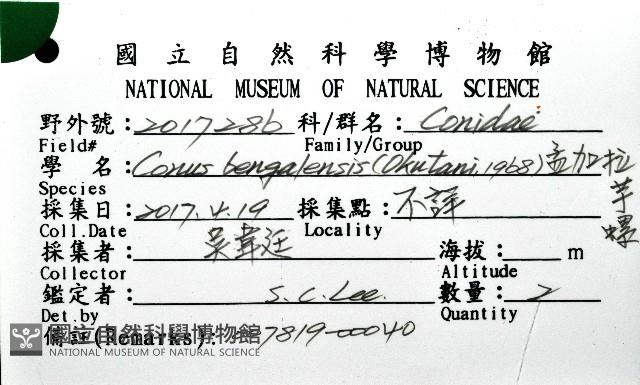 國立自然科學博物館
NATIONAL MUSEUM OF NATURAL SCIENCE
野外號：2017286 科/群名：Conidae
Field# Family/Group
學 名：Conus bengalensis (Okutani, 1968) 孟加拉芋螺
Species
採集日：2017.4.19 採集點：不詳
Coll.Date Locality
採集者：吳韋廷 海拔： m
Collector Altitude
鑑定者：S.C.Lee. 數量：2
Det.by Quantity
備註(Remarks): 7819-00040
國立自然科學博物館
NATIONAL MUSEUM OF NATURAL SCIENCE